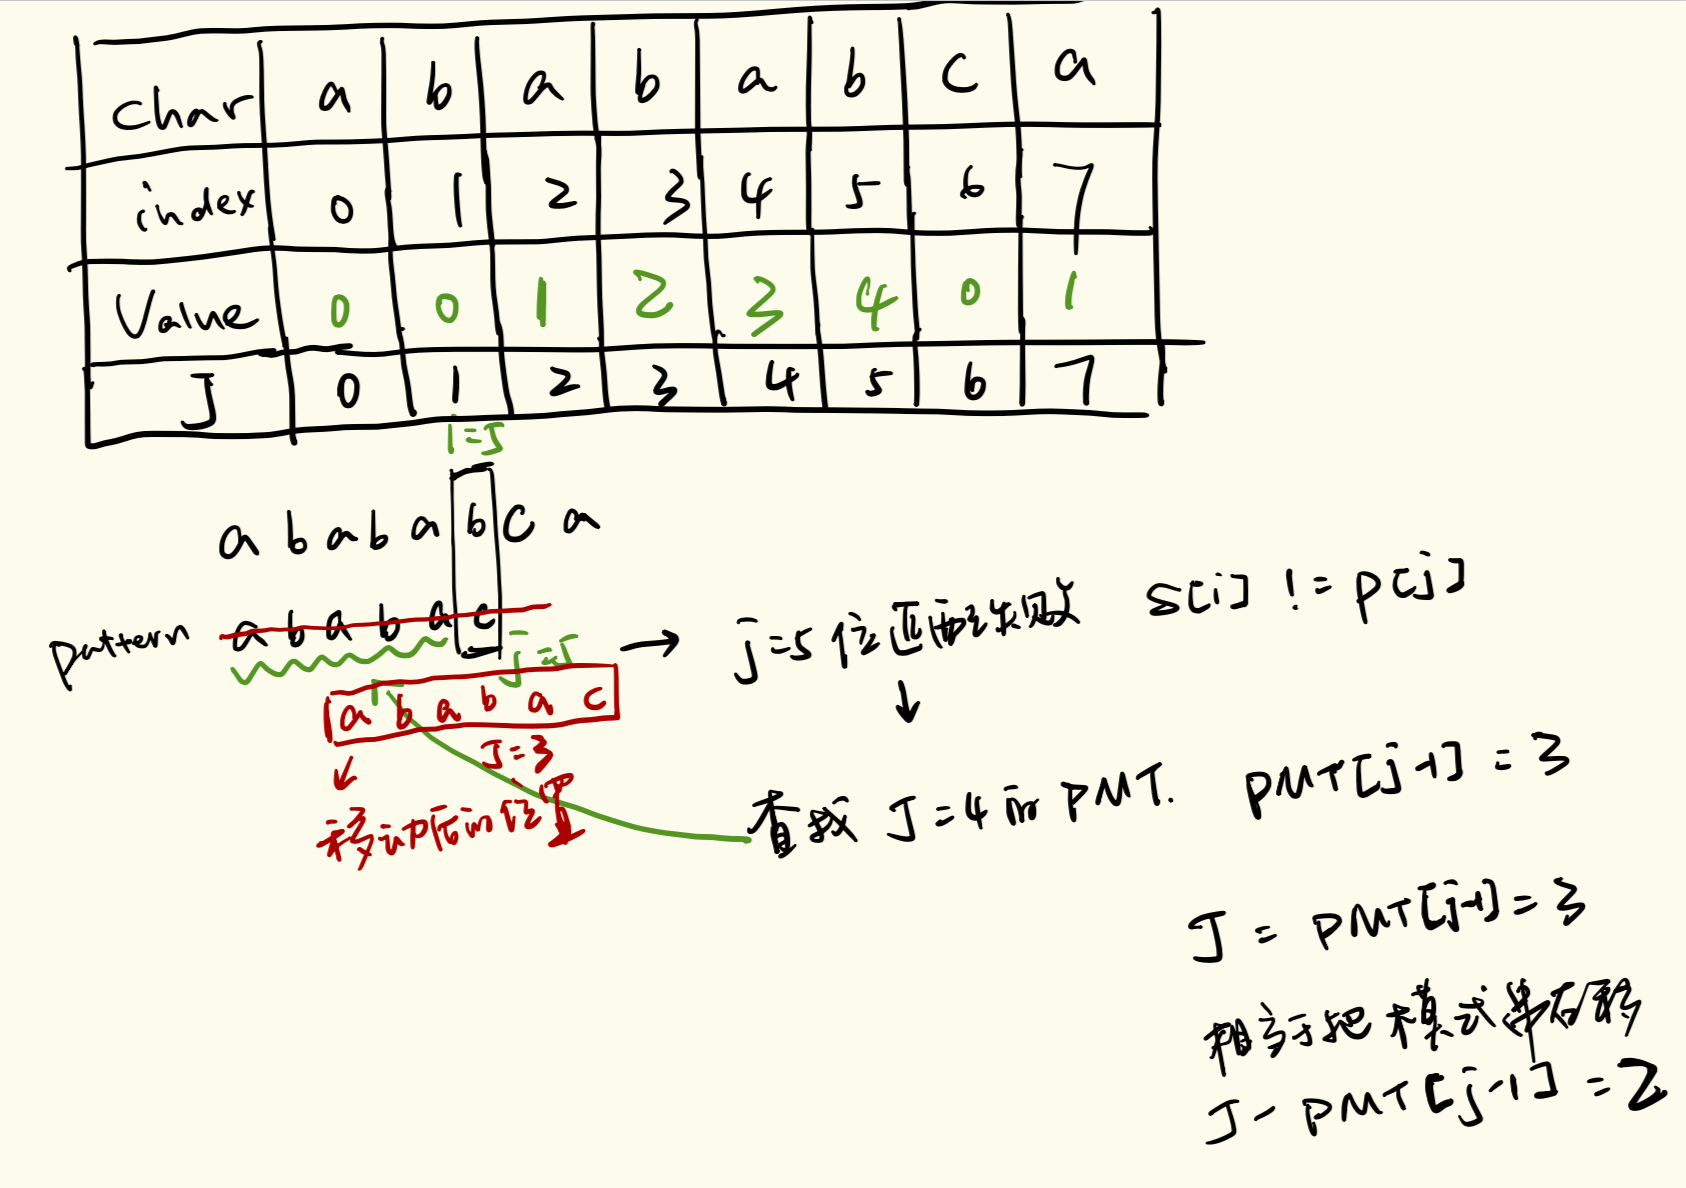 char a b a b a b c a
index 0 1 2 3 4 5 6 7
Value 0 0 1 2 3 4 0 1
J 0 1 2 3 4 5 6 7
i=5
a b a b a b c a
pattern a b a b a c
j=5
a b a b a c
J=3
移动后的位置
j=5位匹配失败 s[i] != p[j]
查找 J=4 in PMT. PMT[j-1] = 3
J = PMT[j-1] = 3
相当于把模式串右移
J - PMT[j-1] = 2